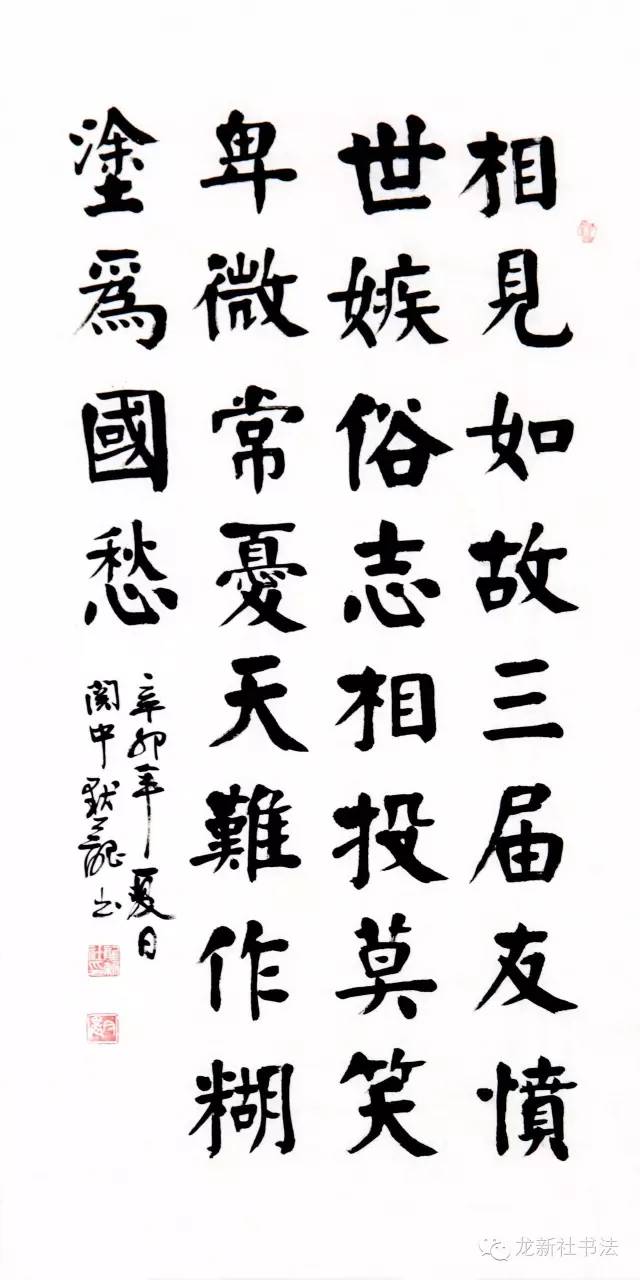 相見如故三届友憤
世嫉俗志相投莫笑
卑微常憂天難作糊
塗爲國愁
辛卯年夏日
関中獃龍书
龙新社书法